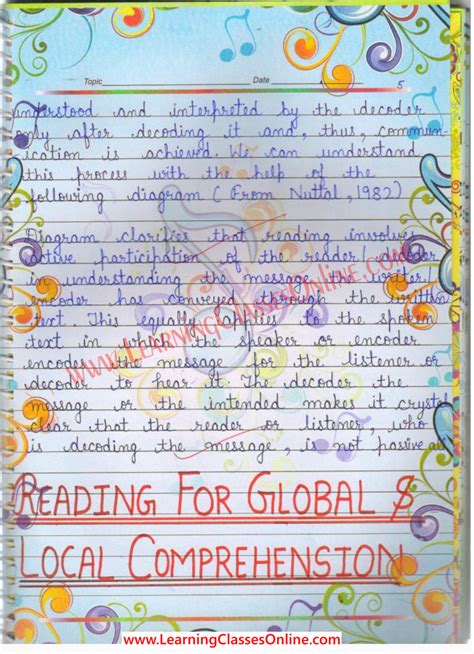 Topic Date 5
understood and interpreted by the decoder
only after decoding it and, thus, commun-
-ication is achieved. We can understand
this process with the help of the
following diagram (From Nuttal, 1982)
Diagram clarifies that reading involves
active participation of the reader/decoder
in understanding the message the writer/
encoder has conveyed through the written
text. This equally applies to the spoken
text in which the speaker or encoder
encodes the message for the listener or
decoder to hear it. The decoder the
message or the intended makes it crystal
clear that the reader or listener, who
is decoding the message, is not passive
www.LearningClassesOnline.com
READING FOR GLOBAL &
LOCAL COMPREHENSION
www.LearningClassesOnline.com